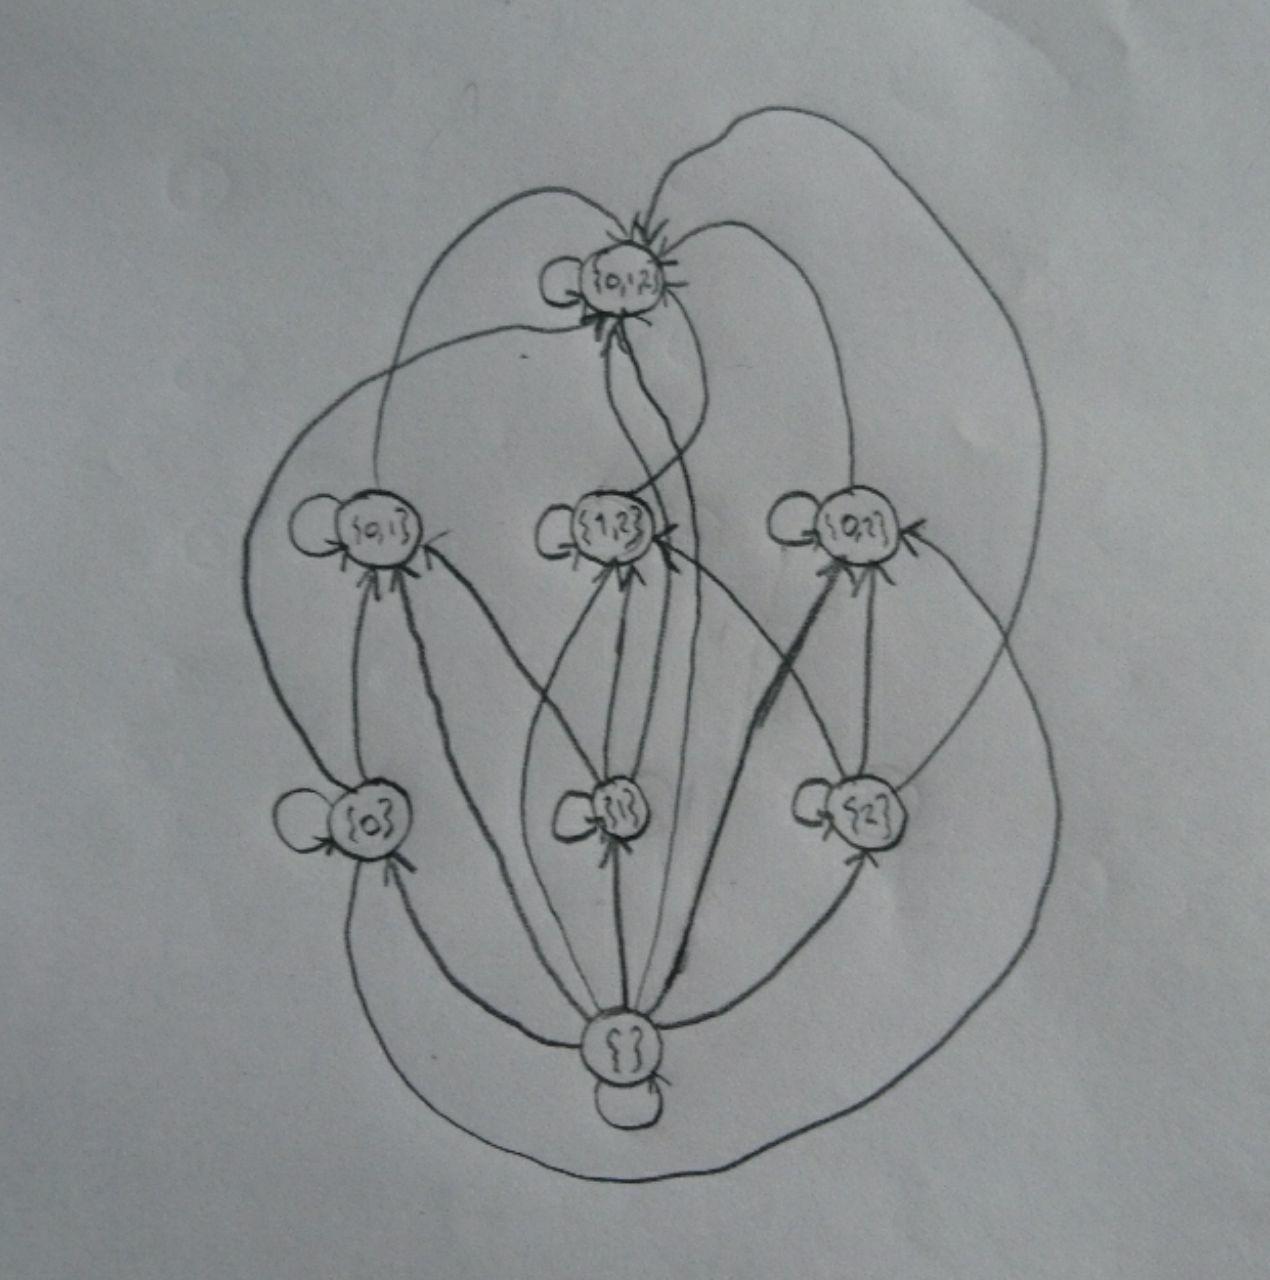 {0,1,2}
{0,1}
{1,2}
{0,2}
{0}
{1}
{2}
{ }